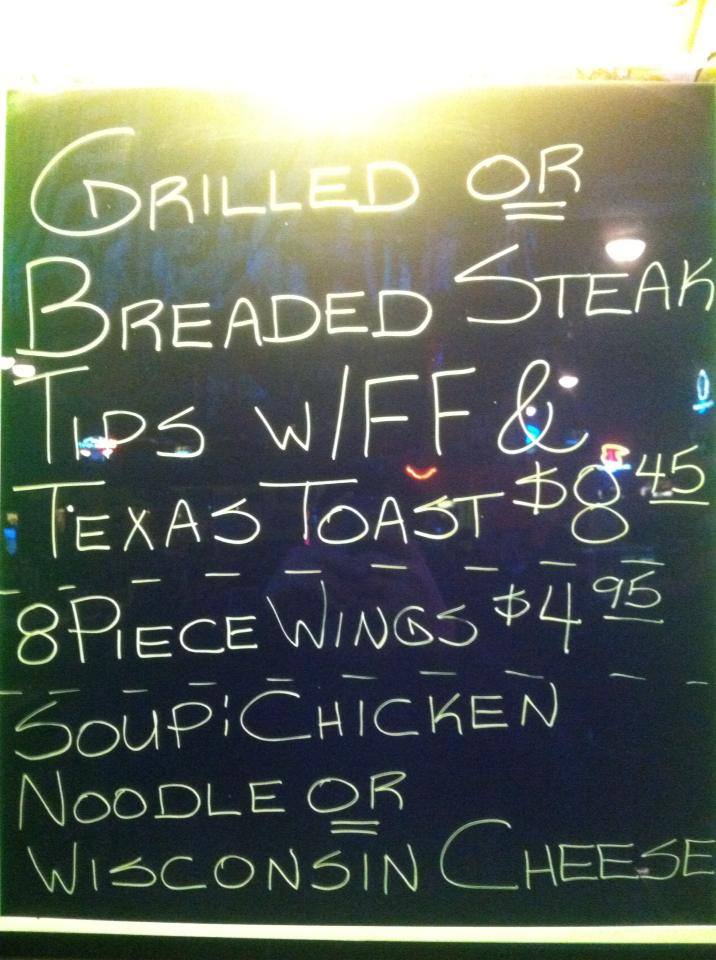 GRILLED OR
BREADED STEAK
TIPS W/FF &
TEXAS TOAST $8.45
8 PIECE WINGS $4.95
SOUP: CHICKEN
NOODLE OR
WISCONSIN CHEESE